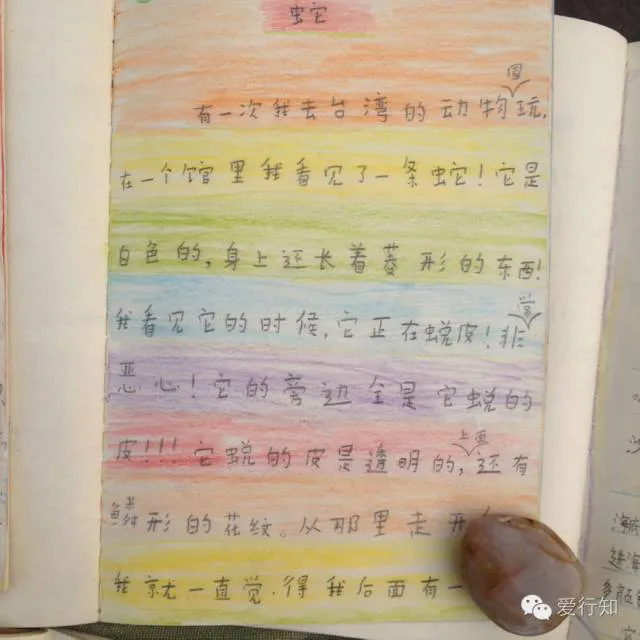 蛇
有一次我去台湾的动物圆玩,
在一个馆里我看见了一条蛇！它是
白色的,身上还长着菱形的东西!
我看见它的时候,它正在蜕皮！非常
恶心！它的旁边全是它蜕的
皮!!!它蜕的皮是透明的,上面还有
鳞形的花纹。从那里走开
我就一直觉得我后面有一
沙
海底
进海
爱行知